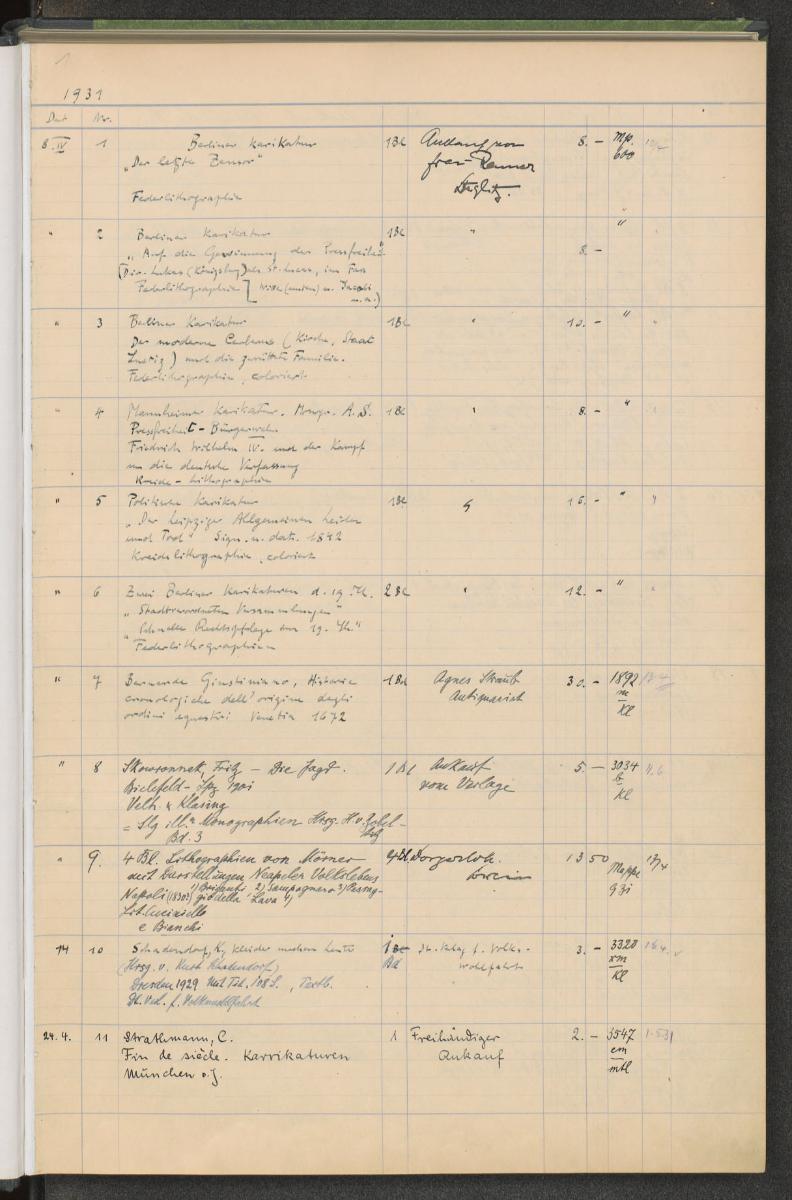 1
1931
Dat Nr.
8.IV 1 Berliner Karikatur 1 Bl Ankauf von 8. - Mp.
„Der letzte Censor" Frau Renner 600
Federlithographie Steglitz.
" 2 Berliner Karikatur 1 Bl " 8. - "
„Auf die Gewinnung der Pressfreiheit"
Federlithographie
" 3 Berliner Karikatur 1 Bl " 10. - "
Der moderne Cerberus (Kirche, Staat
) und die zerrüttete Familie.
Federlithographie, coloriert
" 4 Mannheimer Karikatur. Monogr. A.S. 1 Bl " 8. - "
Pressfreiheit - Bürgerwehr
Friedrich Wilhelm IV. und der Kampf
um die deutsche Verfassung
Kreide-Lithographie
" 5 Politische Karikatur 1 Bl " 16. - "
„Der Leipziger Allgemeinen Leiden
und Tod" Sign. u. dat. 1842
Kreidelithographie, coloriert
" 6 Zwei Berliner Karikaturen d. 19. Jh. 2 Bl " 12. - "
„Stadtverordneten Versammlungen"
„Schnelle Rechtspflege im 19. Jh."
Federlithographien
" 7 Bernardo Giustiniano, Historie 1 Bd Agnes Straub 30. - 1892
cronologiche dell'origine degli Antiquariat m
ordini equestri Venetia 1672 Kl
" 8 Skowronnek, Fritz - Die Jagd. 1 Bd Ankauf 5. - 3034
Bielefeld-Lpz 1901 vom Verlage b
Velh. & Klasing Kl
= Slg ill. Monographien Hrsg. H. v. Zobel-
Bd. 3 titz
" 9. 4 Bl. Lithographien von Mörner 4 Bl. Dorgerloh. 13 50 Mappe
mit Darstellungen Neapeler Volkslebens Berlin 93i
Napoli (1830?) 1) Briganti 2) Zampognaro 3) Passag-
gio della "Lava" 4)
Lit. Cuciniello
e Bianchi
14 10 Schadendorf, K, Kleider machen Leute 1 Bd Dt. Verlag f. Volks- 3. - 3320 16.4.
(Hrsg. v. Kurt Schadendorf) wohlfahrt xm
Dresden 1929 Mit Tit. 108 S., Textb. Kl
Dt. Verl. f. Volkswohlfahrt
24.4. 11 Strathmann, C. 1 Freihändiger 2. - 3547 1.5.31
Fin de siècle. Karrikaturen Ankauf em
München o.J. mtl